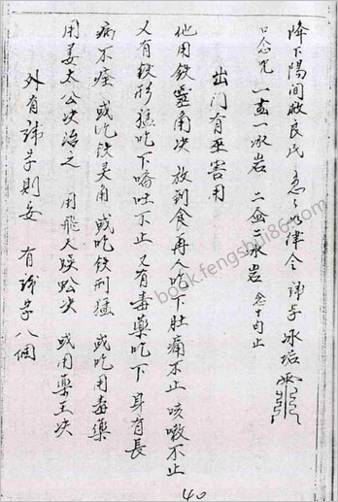 降下陽間敂良氏急々如津令 諱字冰岩
口念咒 一盍一冰岩 二盍二冰岩 念十句止
出门有巫害用
他用鉄灵角决 放到食再人吃下肚痛不止 咳嗽不止
又有鉄形猛吃下嘔吐不止 又有毒藥吃下 身有長
病不痊 或吃鉄灵角 或吃鉄刑猛 或吃用毒藥
用姜太公决治之 用飛天蜈蚣决 或用藥王决
外有諱字則安 有諱字八個
book.fengshui86.com
40